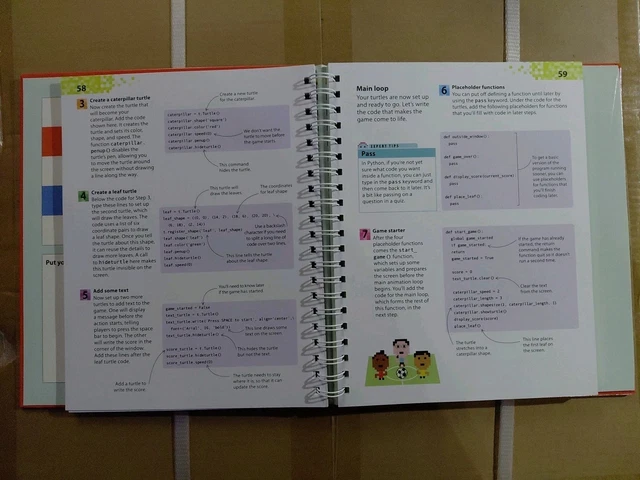 58
3 Create a caterpillar turtle
Now create the turtle that
will become your
caterpillar. Add the code
shown here. It creates the
turtle and sets its color,
shape, and speed. The
function caterpillar.
penup() disables the
turtle's pen, allowing you
to move the turtle around
the screen without drawing
a line along the way.
Create a new turtle
for the caterpillar.
caterpillar = t.Turtle()
caterpillar.shape('square')
caterpillar.color('red')
caterpillar.speed(0)
caterpillar.penup()
caterpillar.hideturtle()
We don't want the
turtle to move before the
game starts.
This command
hides the turtle.
4 Create a leaf turtle
Below the code for Step 3,
type these lines to set up
the second turtle, which
will draw the leaves. The
code uses a list of six
coordinate pairs to draw
a leaf shape. Once you tell
the turtle about this shape,
it can reuse the details to
draw more leaves. A call
to hideturtle here makes
this turtle invisible on the
screen.
This turtle will
draw the leaves.
The coordinates
for leaf shape
leaf = t.Turtle()
t.register_shape('leaf', leaf_shape)
leaf.shape('leaf')
leaf.color('green')
leaf.penup()
leaf.hideturtle()
leaf.speed(0)
Use a backslash
character if you need
to split a long line of
code over two lines.
This line tells the turtle
about the leaf shape.
5 Add some text
Now set up two more
turtles to add text to the
game. One will display
a message before the
action starts, telling
players to press the space
bar to begin. The other
will write the score in the
corner of the window.
Add these lines after the
leaf turtle code.
You'll need to know later
if the game has started.
game_started = False
text_turtle = t.Turtle()
text_turtle.write('Press SPACE to start', align='center',
font=('Arial', 16, 'bold'))
text_turtle.hideturtle()
This line draws some
text on the screen.
This hides the turtle
but not the text.
score_turtle = t.Turtle()
score_turtle.hideturtle()
score_turtle.speed(0)
Add a turtle to
write the score.
The turtle needs to stay
where it is, so that it can
update the score.
59
Main loop
Your turtles are now set up
and ready to go. Let's write
the code that makes the
game come to life.
EXPERT TIPS
Pass
In Python, if you're not yet
sure what code you want
inside a function, you can
just type in the pass keyword
and then come back to it later. It's
a bit like passing on a
question in a quiz.
6 Placeholder functions
You can put off defining a function until later by
using the pass keyword. Under the code for the
turtles, add the following placeholders for functions
that you'll fill with code in later steps.
def outside_window():
pass
def game_over():
pass
def display_score(current_score):
pass
def place_leaf():
pass
To get a basic
version of the
program running
sooner, you can
use placeholders
for functions that
you'll finish
coding later.
7 Game starter
After the four
placeholder functions
comes the start_
game() function,
which sets up some
variables and prepares
the screen before the
main animation loop
begins. You'll add the
code for the main loop,
which forms the rest of
this function, in the
next step.
def start_game():
global game_started
if game_started:
return
game_started = True
score = 0
text_turtle.clear()
caterpillar_speed = 2
caterpillar_length = 3
caterpillar.shapesize(1, caterpillar_length, 1)
caterpillar.showturtle()
display_score(score)
place_leaf()
If the game has already
started, the return
command makes the
function quit so it doesn't
run a second time.
Clear the text
from the screen.
The turtle
stretches into a
caterpillar shape.
This line places
the first leaf on
the screen.